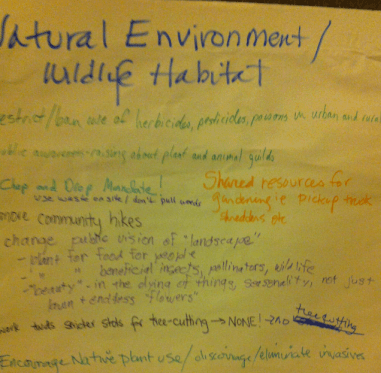 Natural Environment/
Wildlife Habitat
restrict/ban use of herbicides, pesticides, poisons in urban and rural
public awareness-raising about plant and animal guilds
Chop and Drop Mandate!
use waste on site/don't pull weeds
Shared resources for
gardening: pickup truck
shredders etc
more community hikes
change public vision of "landscape"
- plant for food for people
- " " beneficial insects, pollinators, wildlife
- "beauty" - in the dying of things, seasonality, not just
lawn + endless "flowers"
work towards stricter stds for tree-cutting → NONE! → no tree cutting
Encourage Native plant use/discourage/eliminate invasives